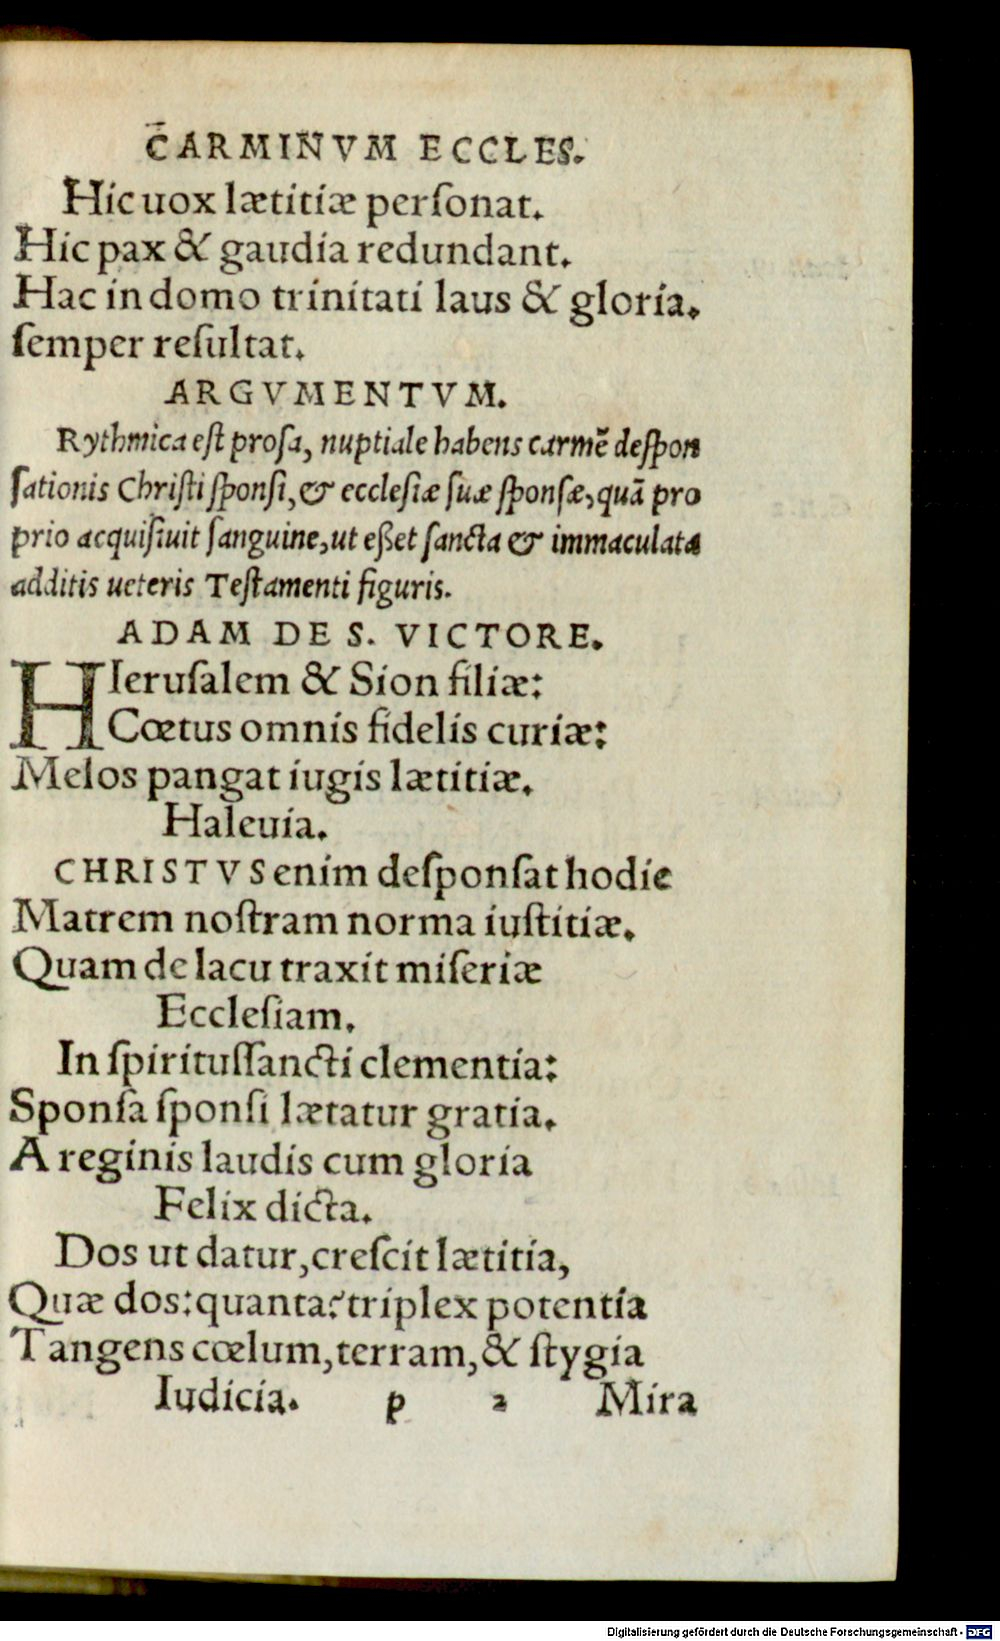 CARMINVM ECCLES.
Hic uox lætitiæ perſonat.
Hic pax & gaudia redundant.
Hac in domo trinitati laus & gloria.
ſemper reſultat.
ARGVMENTVM.
Rythmica eſt proſa, nuptiale habens carmē deſpon
ſationis Chriſti ſponſi, & eccleſiæ ſuæ ſponſæ, quā pro
prio acquiſiuit ſanguine, ut eßet ſancta & immaculata
additis ueteris Teſtamenti figuris.
ADAM DE S. VICTORE.
HIeruſalem & Sion filiæ:
Cœtus omnis fidelis curiæ:
Melos pangat iugis lætitiæ.
Haleuia.
CHRISTVS enim deſponſat hodie
Matrem noſtram norma iuſtitiæ.
Quam de lacu traxit miſeriæ
Eccleſiam.
In ſpirituſſancti clementia:
Sponſa ſponſi lætatur gratia.
A reginis laudis cum gloria
Felix dicta.
Dos ut datur, creſcit lætitia,
Quæ dos: quanta? triplex potentia
Tangens cœlum, terram, & ſtygia
Iudicia. p 2 Mira
Digitalisierung gefördert durch die Deutsche Forschungsgemeinschaft - DFG